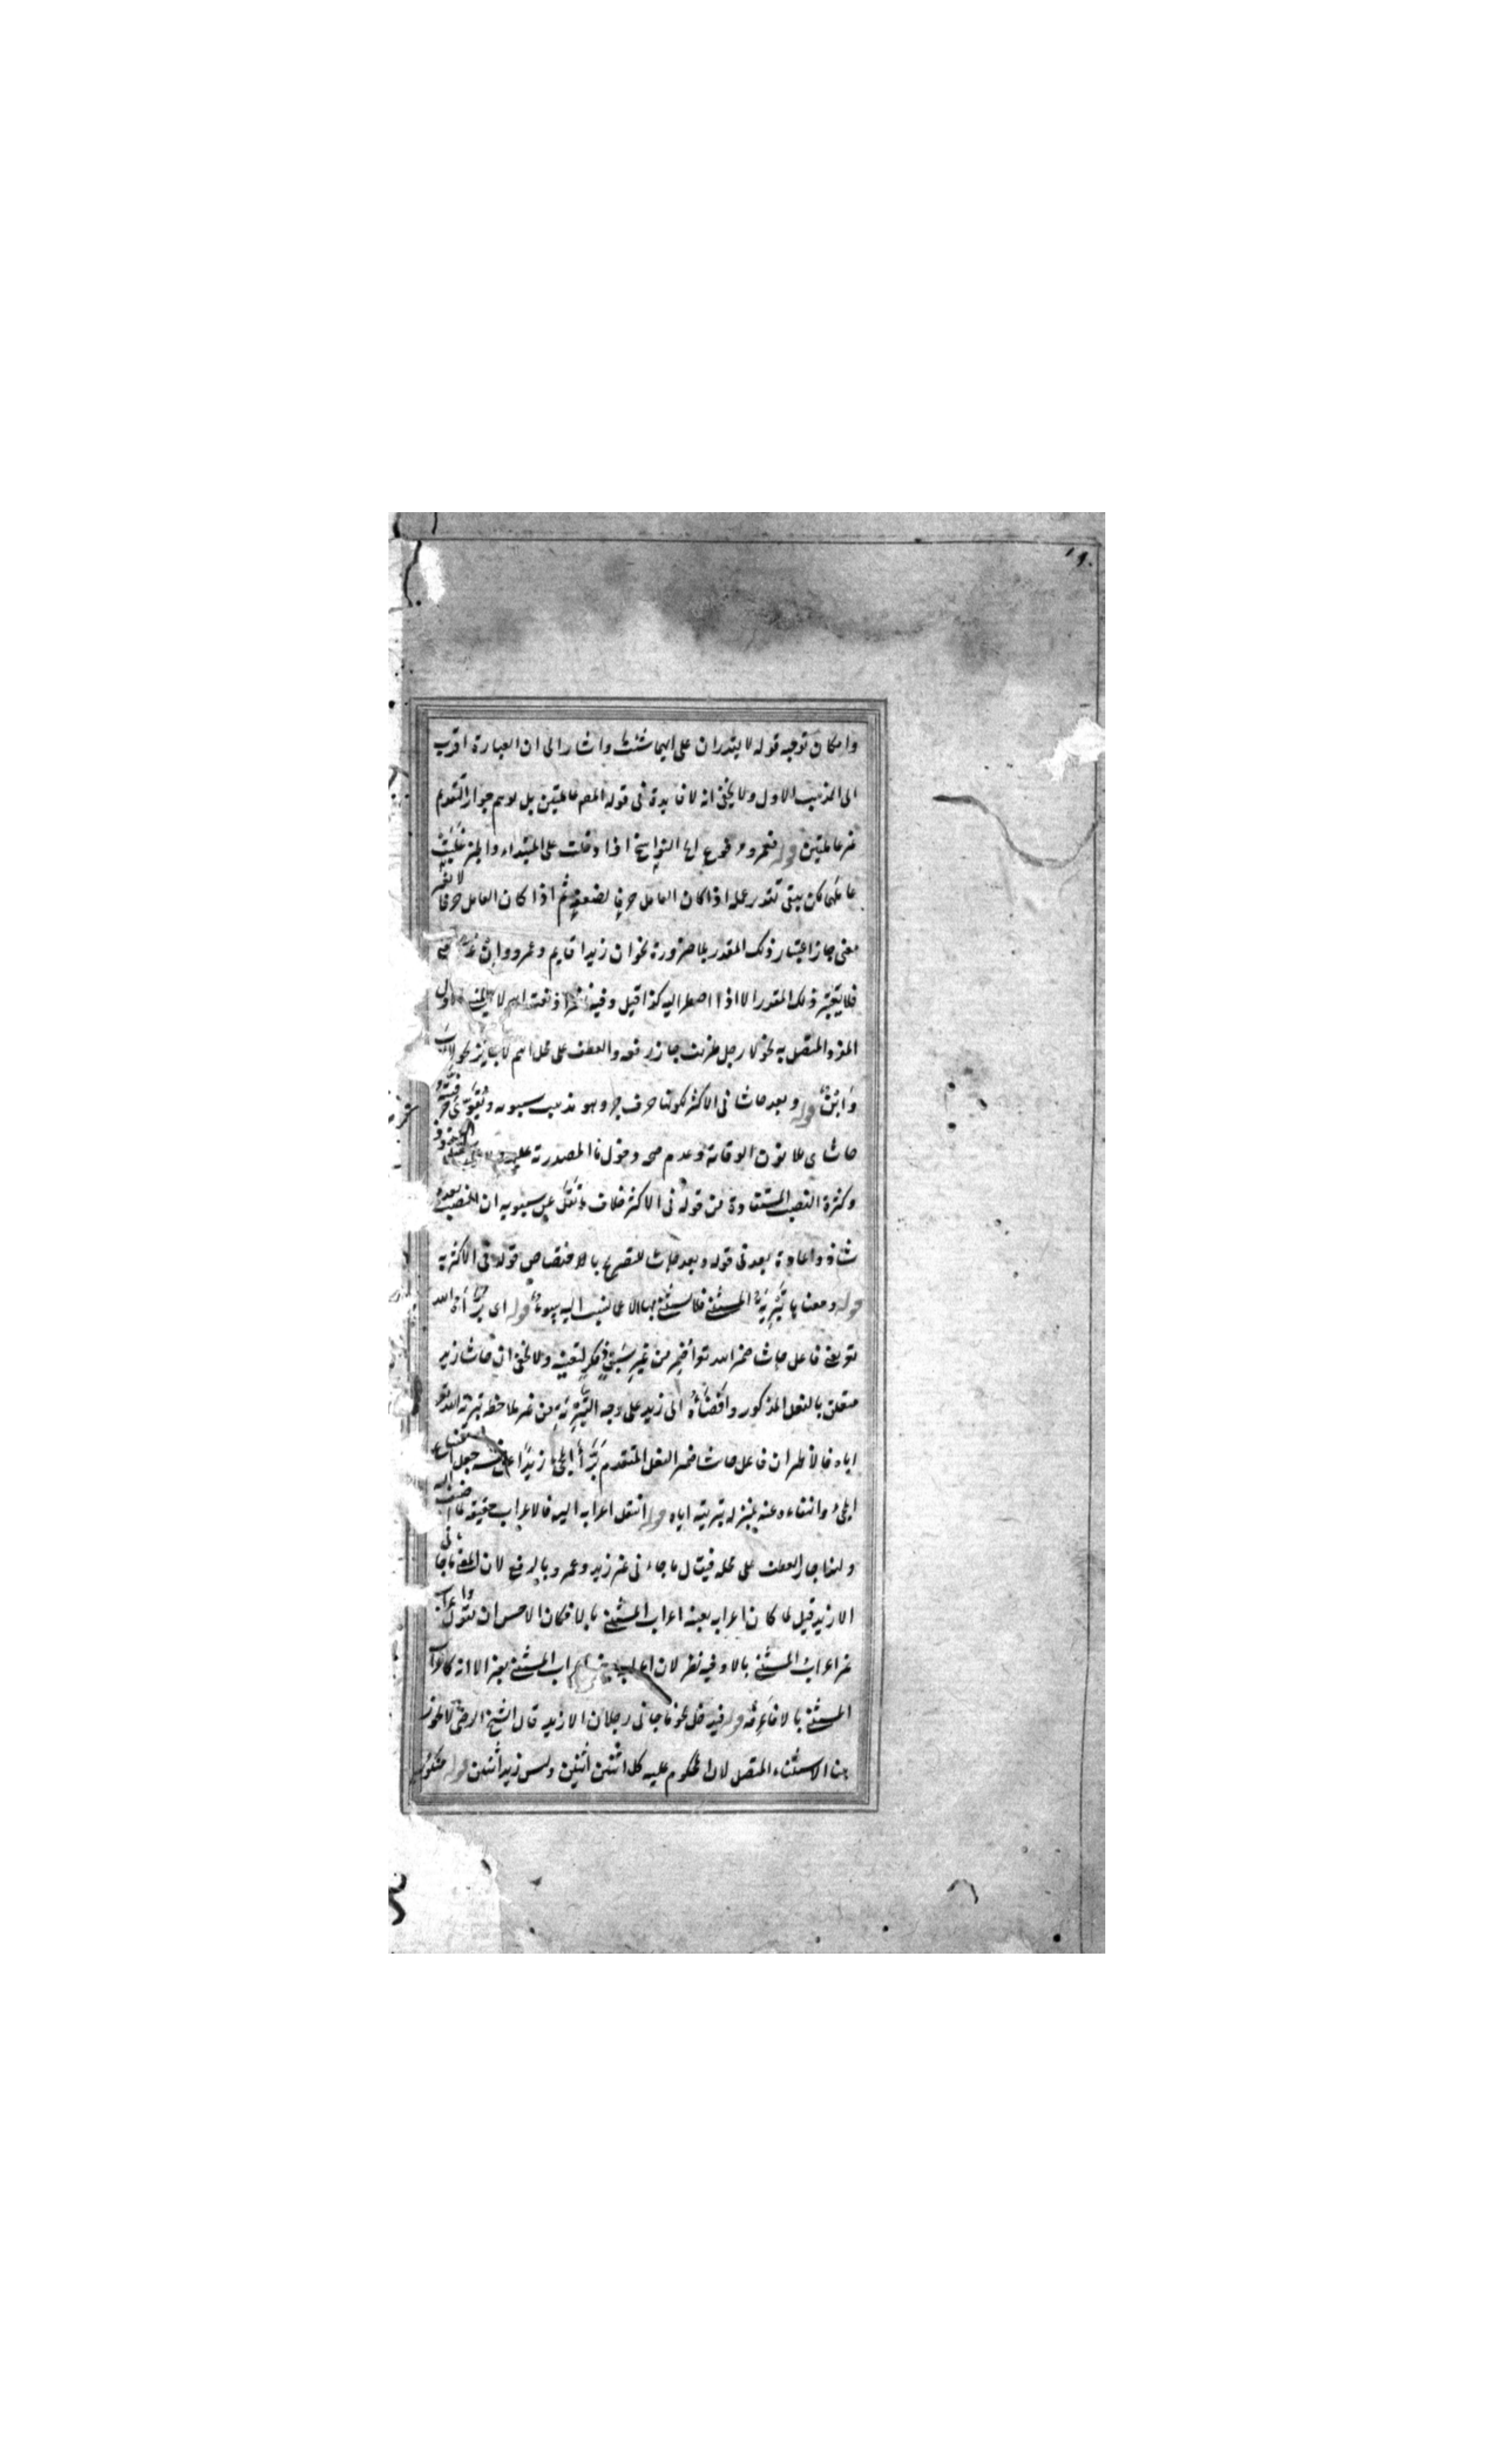 ١٩٠
وامكان توجيه قوله لا يقدران على ايهما شئت واشار الى ان العبارة اقرب
الى المذهب الاول ولا يخفى انه لا فايدة فى قوله المص عاملتين بل يوهم جواز التقديم
غير عاملتين قوله فعمرو مرفوع اى النواسخ اذا دخلت على المبتداء والخبر غلبت
عاملهما لكن يبقى تقدير عمله اذا كان العامل حرفا لضعفه ثم اذا كان العامل حرفا لا يغير
معنى جاز اعتبار ذلك المقدر بلا ضرورة نحو ان زيدا قايم وعمرو وان غير معنى
فلا يعتبر ذلك المقدر الا اذا اضطر اليه كذا قيل وفيه نظر اذ نعت اسم لا المبنى الاول
المفرد المتصل به نحو لا رجل ظريف جاز رفعه والعطف على محل اسم لا جايز نحو لا اب
وابن قوله وبعد حاشا فى الاكثر لكونها حرف جر وهو مذهب سيبويه ويقويه
حاشاى بلا نون الوقاية وعدم صحة دخول ما المصدرية عليه
وكثرة النصب المستفادة من قوله فى الاكثر خلاف ما نقل عن سيبويه ان النصب بعده
شاذ واعادة بعد فى قوله وبعد حاشا للتصريح بالاختصاص قوله فى الاكثر به
قوله ومعناها تبرية المستثنى فلا يستثنى بها الا عما ينسب اليه سوء قوله اى برأ الله
تو يعنى فاعل حاشا ضمير الله تو اضمر من غير سبق ذكر لتعينه ولا يخفى ان حاشا زيد
متعلق بالفعل المذكور وافضاؤه الى زيد على وجه التبرية من غير ملاحظة تبرية الله تو
اياه فالاظهران فاعل حاشا ضمير الفعل المتقدم برأ المجئ زيدا عن نفسه جعل امتناع
المجئ وانتفاءه عنه بمنزلة تبريته اياه قوله انتقل اعرابه اليه فالاعراب حقيقة لما اضيف اليه
ولهذا جاز العطف على محله فيقال ما جاءنى غير زيد وعمرو بالرفع لان المعنى ما جاءنى
الا زيد قيل لما كان اعرابه بعينه اعراب المستثنى بالا فكان الاحسن ان يقول واعراب
غير اعراب المستثنى بالا وفيه نظر لان اعراب المستثنى بغير الا انه كاعراب
المستثنى بالا فاعرفه قوله فيدخل نحو ما جانى رجلان الا زيد قال الشيخ الرضى لا يجوز
هنا الاستثناء المتصل لان المحكوم عليه كل اثنين اثنين وليس زيد اثنين قوله منكور